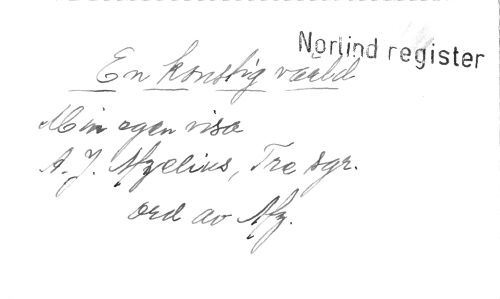 Norlind register
En konstig värld
Min egen visa
A. J. Afzelius, Tre sgr.
ord av Afz.